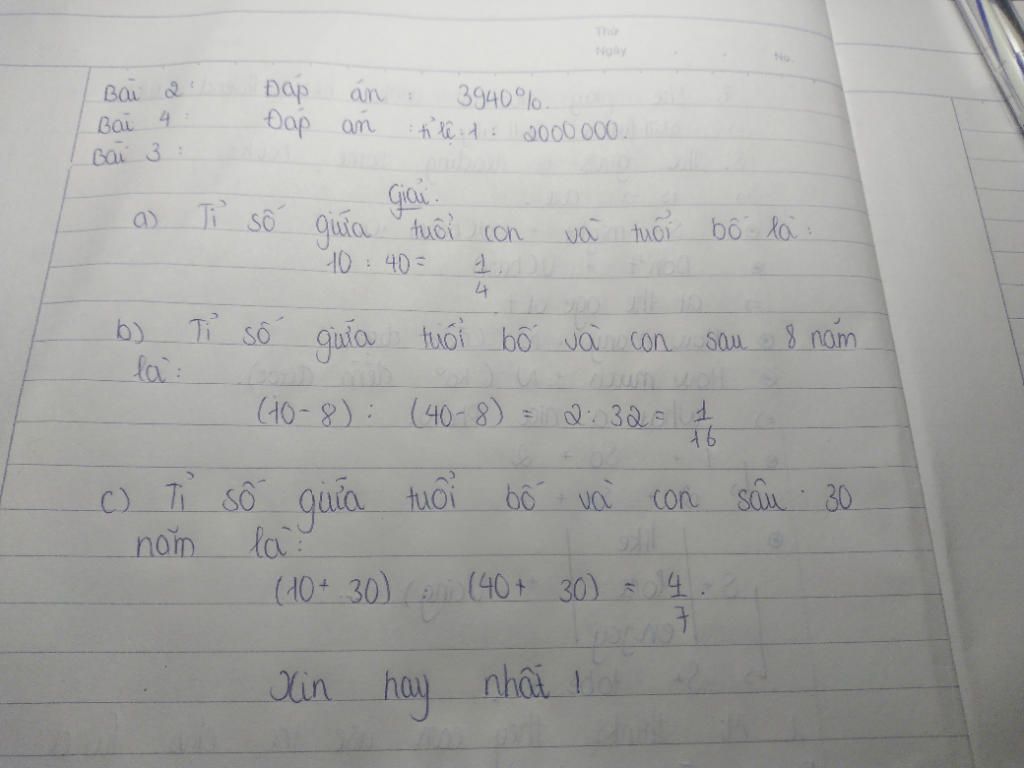 Thứ
Ngày
No.
Bài 2: Đáp án: 3940%.
Bài 4: Đáp án: tỉ lệ 1: 2000000.
Bài 3:
Giải.
a) Tỉ số giữa tuổi con và tuổi bố là:
10 : 40 = 1/4.
b) Tỉ số giữa tuổi bố và con sau 8 năm
là:
(10 - 8) : (40 - 8) = 2 : 32 = 1/16
c) Tỉ số giữa tuổi bố và con sau 30
năm là:
(10 + 30) : (40 + 30) = 4/7.
Xin hay nhất!